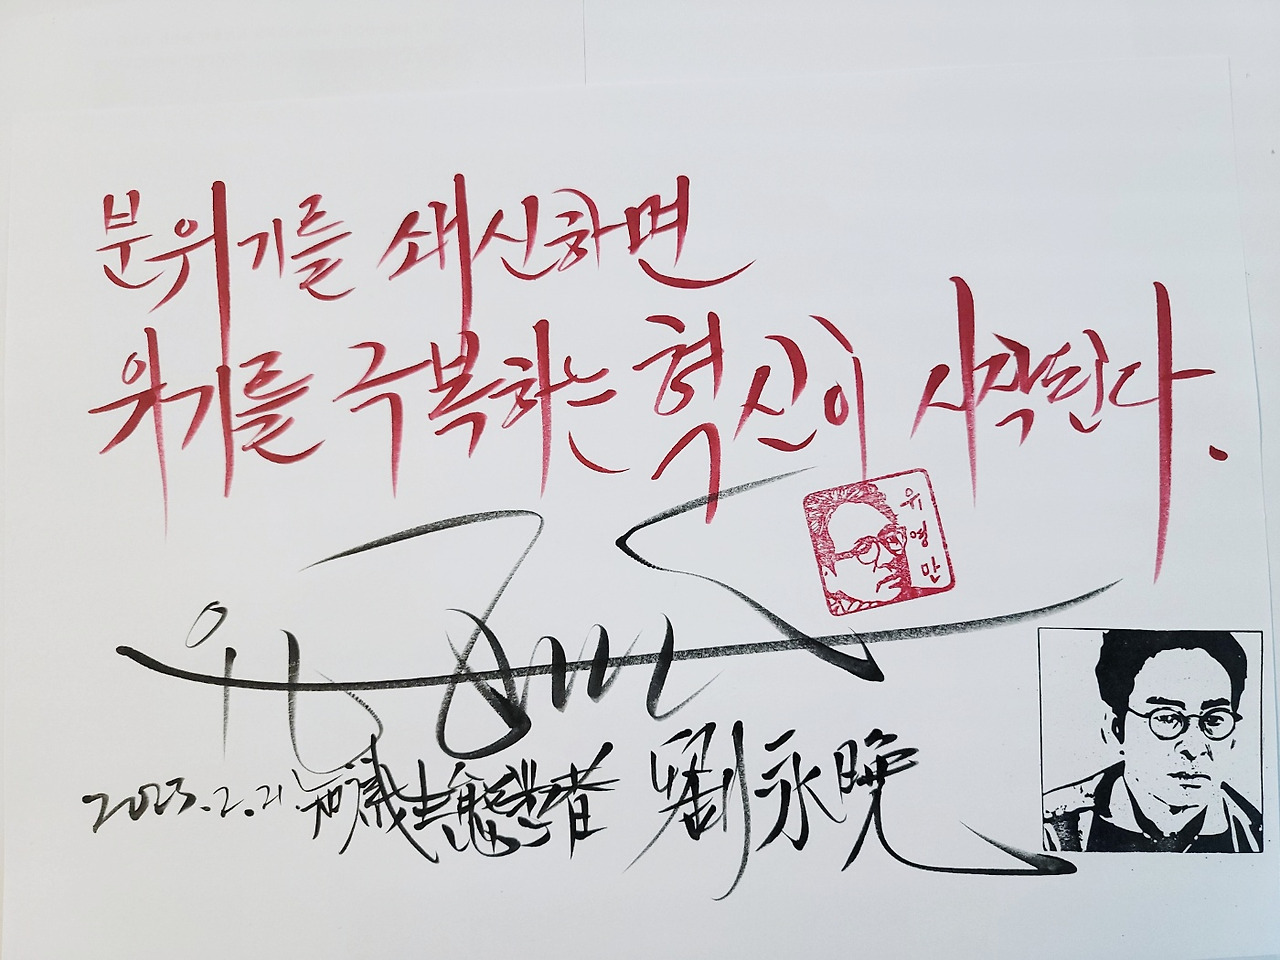 분위기를 쇄신하면
위기를 극복하는 혁신이 시작된다.
유영만
2023.2.21 知識生態學者 劉永晩